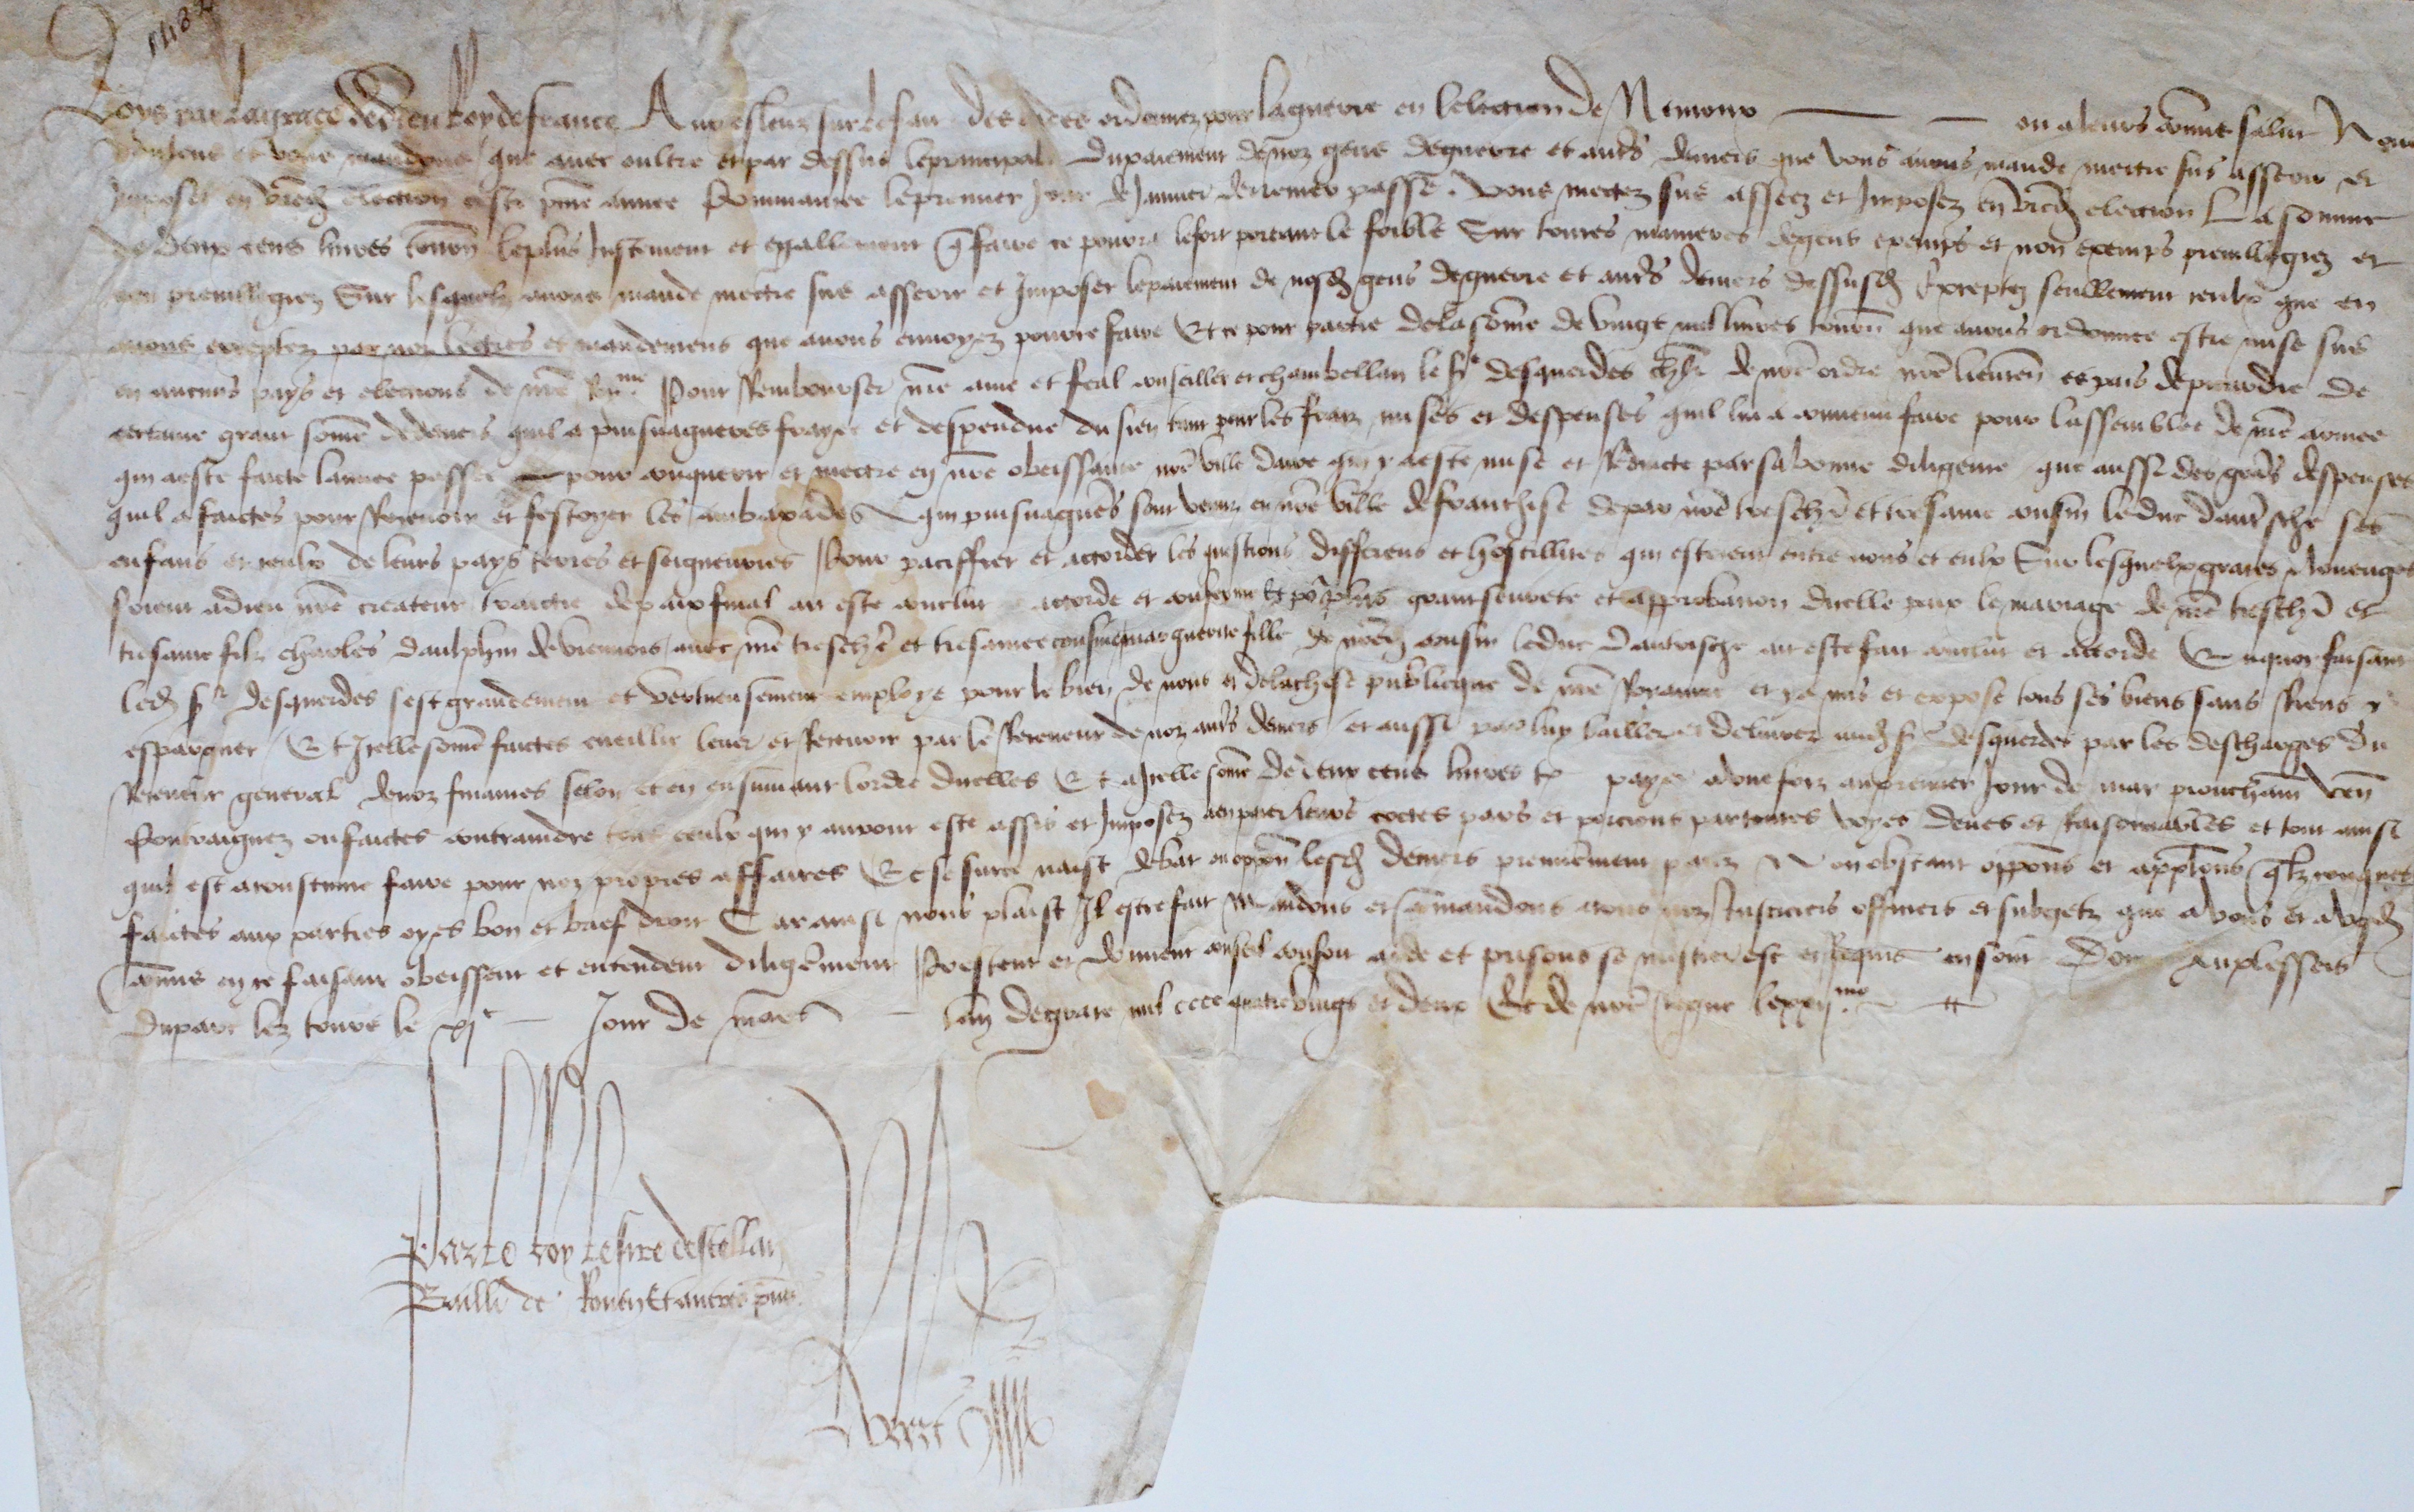 1482
Loys par la grace de dieu Roy de france Aux esleuz sur le fait des aides ordonnez pour la guerre en lelection de Nemoux ou a leurs commis salut Nous
voulons et vous mandons que avec oultre et par dessus le principal du paiement de noz gens de guerre et autrs deniers que vous avons mande mectre sus asseoir et
imposer en vred election ceste pnte annee commancee le premier jour de Janvier dernier passe. Vous mectez sus asseez et Imposez en vred election La somme
de deux cens livres tourn le plus Justement et egallement q faire ce pourra le fort portant le foible Sur toutes manieres de gens exemps et non exemps previllegiez et
non previllegiez Sur lesquelz avons mande mectre sus asseoir et Imposer le paiement de nosd gens de guerre et autrs deniers dessusd Exceptez seullement ceulx que en
avons exceptez par noz lectres et mandemens que avons envoyez pour ce faire Et ce pour partie de la some de vingt mil livres tourn que avons ordonnee estre mise sus
en aucuns pays et elections de nre Rme Pour Rembourser nre ame et feal conseiller et chambellan le sr desquerdes chlr de nore ordre nre lieuten es pais de picardie de
certaine grant some de deniers quil a puis nagueres fraye et despendue du sien tant pour les fraiz mises et despenses quil lui a convenu faire pour lassemblee de nre armee
qui a este faicte lannee passee pour conquerir et mectre en nre obeissance nre ville daire qui y a este mise et Reducte par sa bonne diligence que aussi des grās despenses
quil a faictes pour Recevoir et festoyer les ambaxades qui puis nagues sont venuz en nre ville de franchise de par nre treschr et tresame cousin le duc dautrische ses
enfans et ceulx de leurs pays terres et seigneuries Pour paciffier et accorder les questions differens et hostillites qui estoient entre nous et eulx Sur lesquelx graces et louenges
soient a dieu nre createur traictie de paix final ait este conclut accorde et conferme Et po plus grant seurete et approbacion dicelle paix le mariage de nre treschr et
tresame filz charles daulphin de viennois avec nre treschr et tresamee cousine marguerite fille de nred cousin le duc dautrische ait este fait conclut et accorde En quoy faisant
led sr desquerdes sest grandement et vertueusement employe pour le bien de nous et de la chose publicque de nre Royaume et y a mis et expose tous ses biens sans Riens y
espargner Et Icelle some faictes cueillir lever et Recevoir par le Receveur de noz autrs deniers et aussi par luy bailler et delivrer aud sr desquerdes par les descharges du
Receveur general de noz finances selon et en ensuivant lordre dicelles Et a Icelle some de deux cens livres tx payer a une foiz au premier Jour de may prouchain ven
Contraignez ou faictes contraindre tous ceulx qui y auront este assis et Imposez a en paier leurs coctes pars et porcions par toutes voyes deues et Raisonnables et tout ainsi
quil est acoustume faire pour noz propres affaires Et se sur ce naist debat ou oppon lesd deniers premierement paiez Nonobstant oppons et appellons qlzconques
faictes aux parties oyes bon et brief droit Car ainsi nous plaist Il estre fait Mandons et comandons a tous noz Justiciers officiers et subgetz que a vous et a vosd
comis en ce faisant obeissent et entendent diligemment Prestent et donnent conseil confort aide et prisons se mestier est et Requis en sont Donn au plesseis
du parc lez tours le xie Jour de mars lan de grace mil cccc quatre vings et deux Et de nore Regne le xxijme
Par le roy le sire destellan
Bailli de Rouen Et autres pns